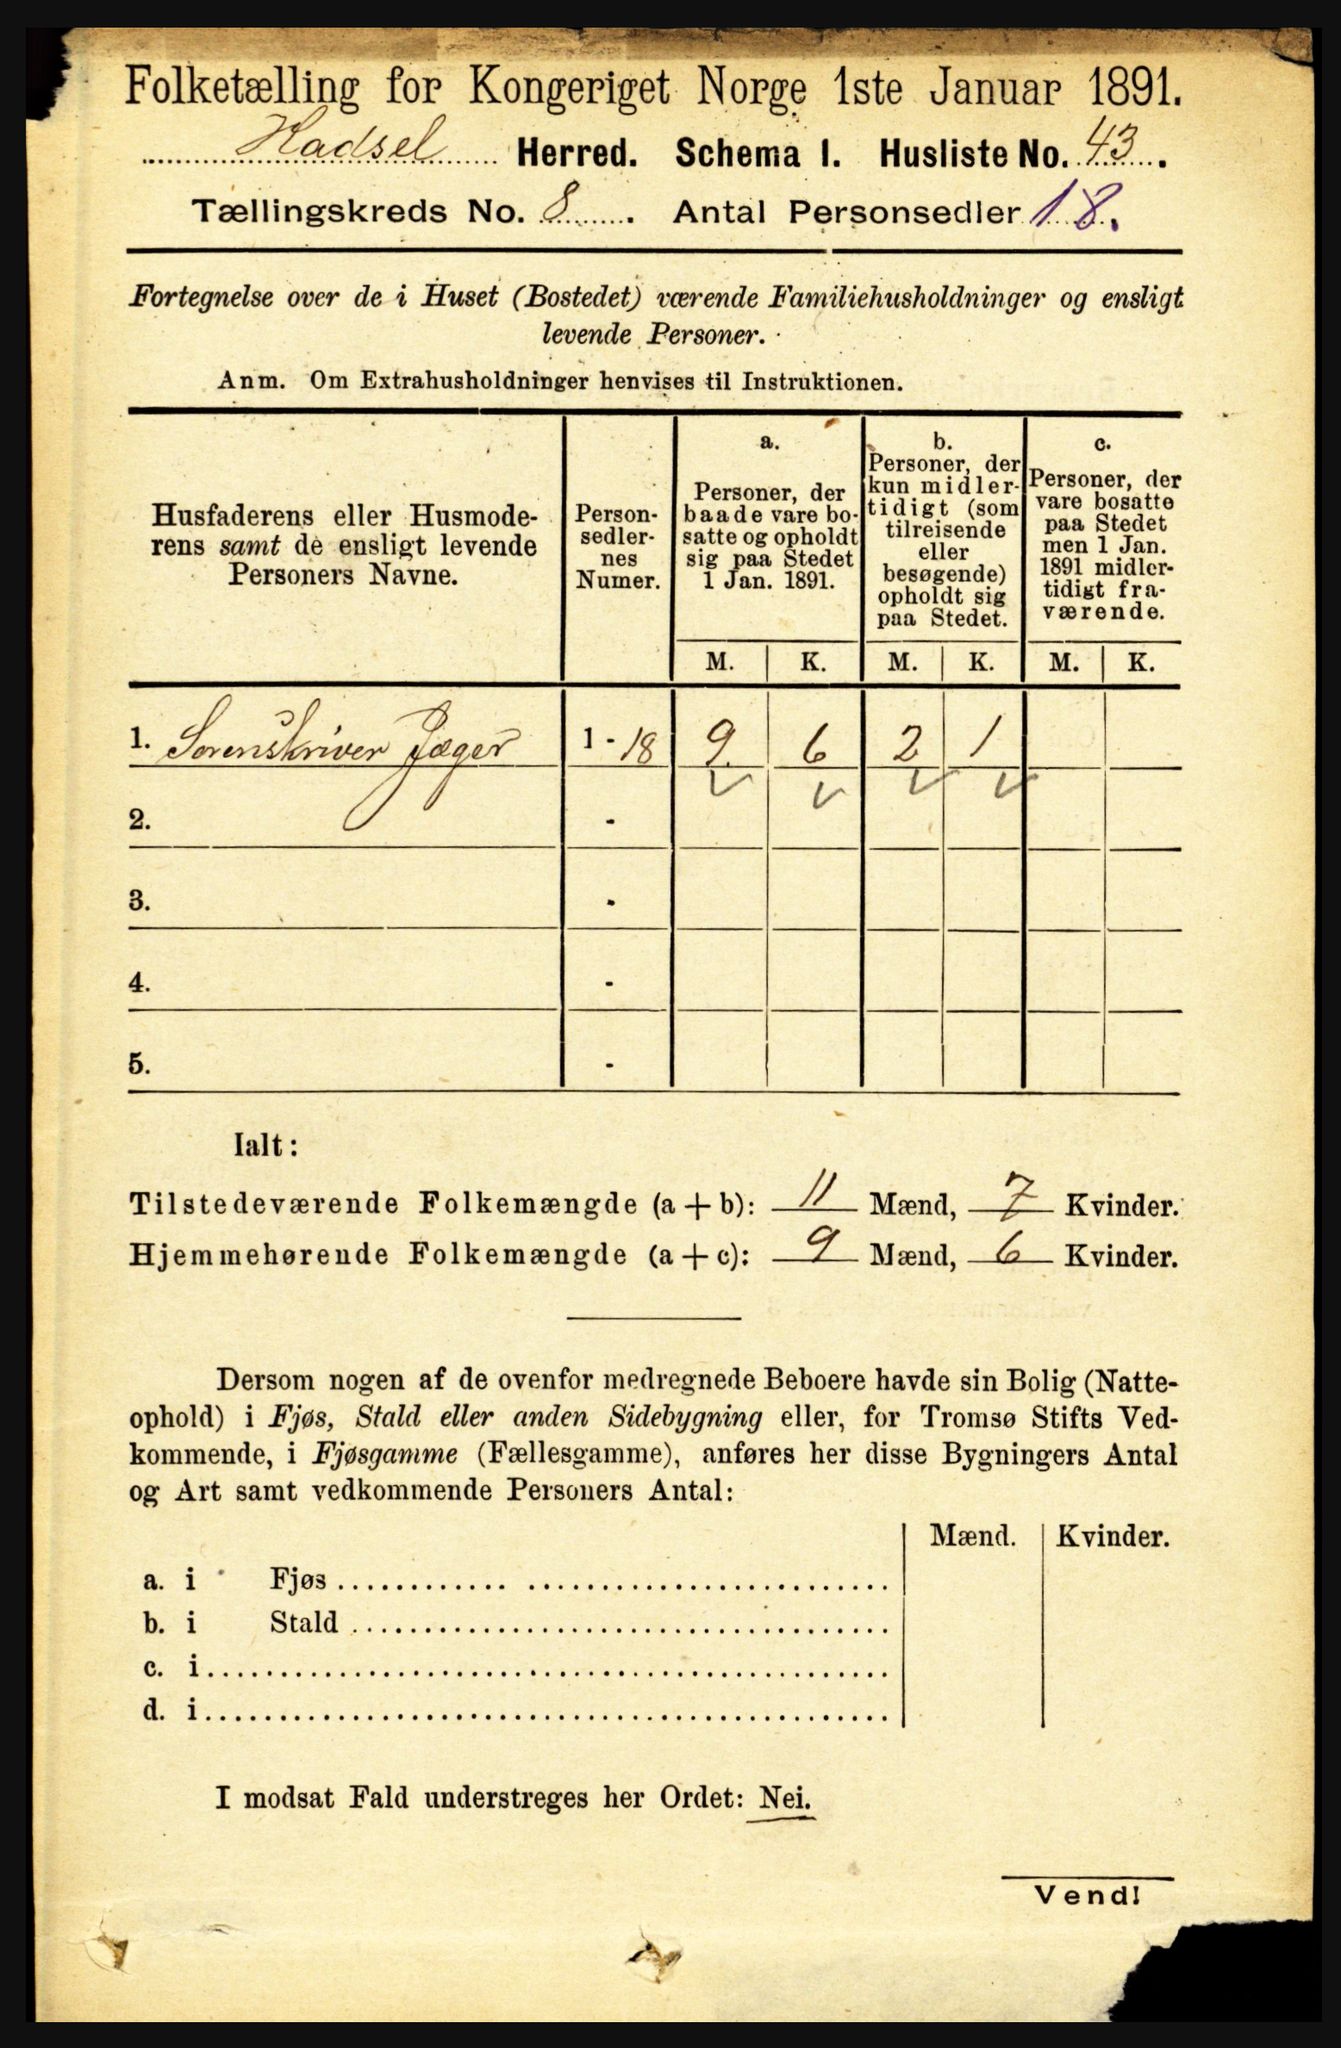 Folketælling for Kongeriget Norge 1ste Januar 1891.
Hadsel Herred. Schema I. Husliste No. 43.
Tællingskreds No. 8. Antal Personsedler 18.
Fortegnelse over de i Huset (Bostedet) værende Familiehusholdninger og ensligt
levende Personer.
Anm. Om Extrahusholdninger henvises til Instruktionen.
Husfaderens eller Husmode-
rens samt de ensligt levende
Personers Navne.
Person-
sedler-
nes
Numer.
a.
Personer, der
baade vare bo-
satte og opholdt
sig paa Stedet
1 Jan. 1891.
b.
Personer, der
kun midler-
tidigt (som
tilreisende
eller
besøgende)
opholdt sig
paa Stedet.
c.
Personer, der
vare bosatte
paa Stedet
men 1 Jan.
1891 midler-
tidigt fra-
værende.
M. K. M. K. M. K.
1. Sorenskriver Jæger 1 - 18 9 6 2 1
2. -
3. -
4. -
5. -
Ialt:
Tilstedeværende Folkemængde (a + b): 11 Mænd, 7 Kvinder.
Hjemmehørende Folkemængde (a + c): 9 Mænd, 6 Kvinder.
Dersom nogen af de ovenfor medregnede Beboere havde sin Bolig (Natte-
ophold) i Fjøs, Stald eller anden Sidebygning eller, for Tromsø Stifts Ved-
kommende, i Fjøsgamme (Fællesgamme), anføres her disse Bygningers Antal
og Art samt vedkommende Personers Antal:
Mænd. Kvinder.
a. i Fjøs
b. i Stald
c. i
d. i
I modsat Fald understreges her Ordet: Nei.
Vend!